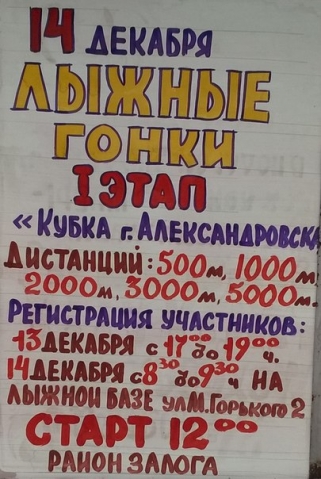 14 ДЕКАБРЯ
ЛЫЖНЫЕ
ГОНКИ
I ЭТАП
«КУБКА г. АЛЕКСАНДРОВСКА
ДИСТАНЦИЙ: 500м, 1000м,
2000м, 3000м, 5000м.
РЕГИСТРАЦИЯ УЧАСТНИКОВ:
13 ДЕКАБРЯ с 17⁰⁰ до 19⁰⁰ ч.
14 ДЕКАБРЯ с 8³⁰ до 9³⁰ ч НА
ЛЫЖНОЙ БАЗЕ ул М. Горького 2
СТАРТ 12⁰⁰
РАЙОН ЗАЛОГА